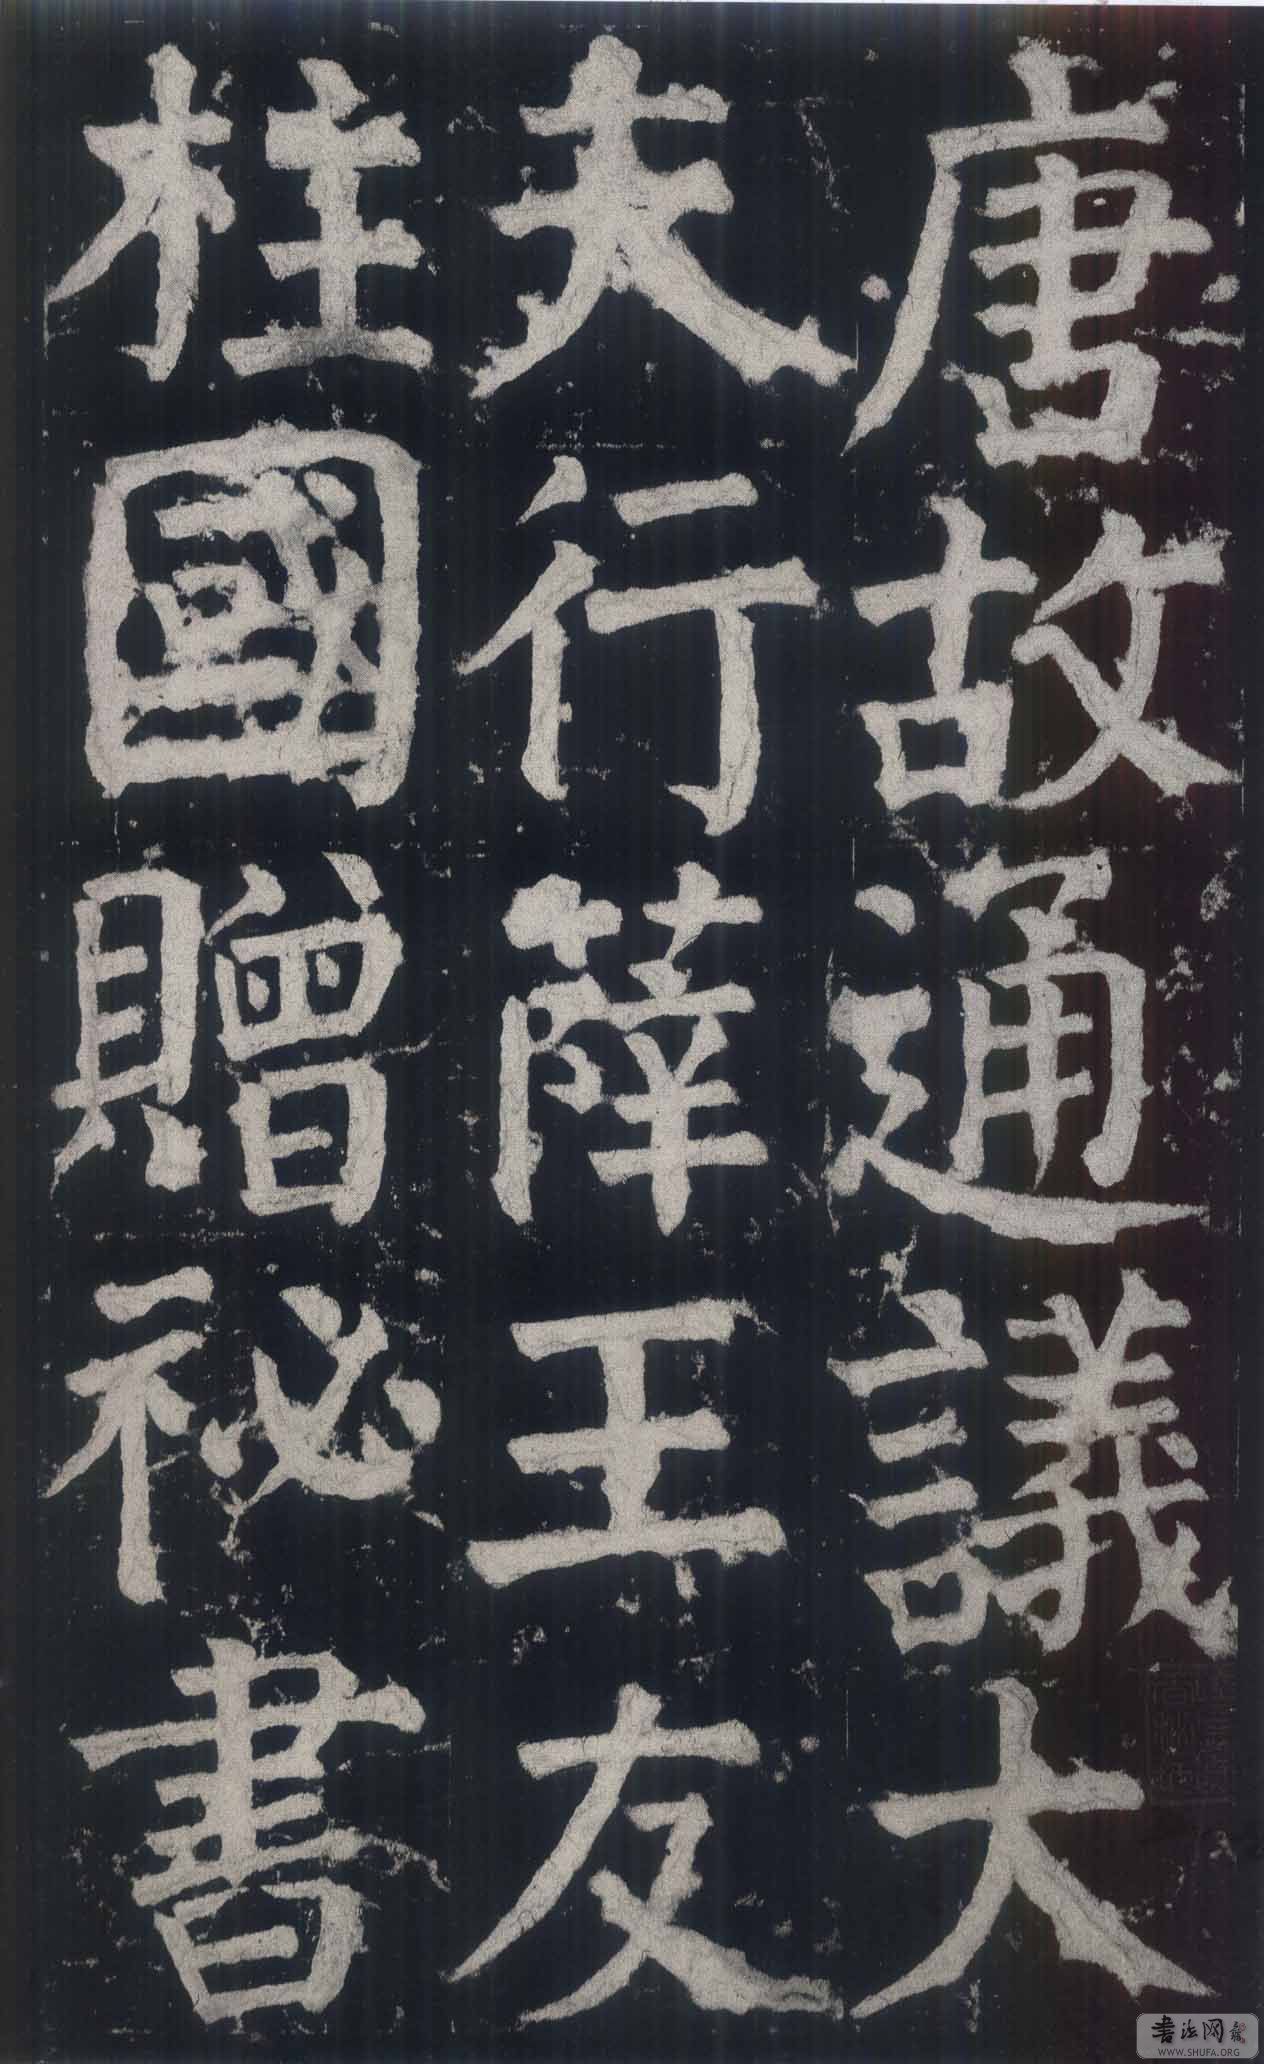 唐故通議大
夫行薛王友
柱國贈祕書
書法网
WWW.SHUFA.ORG